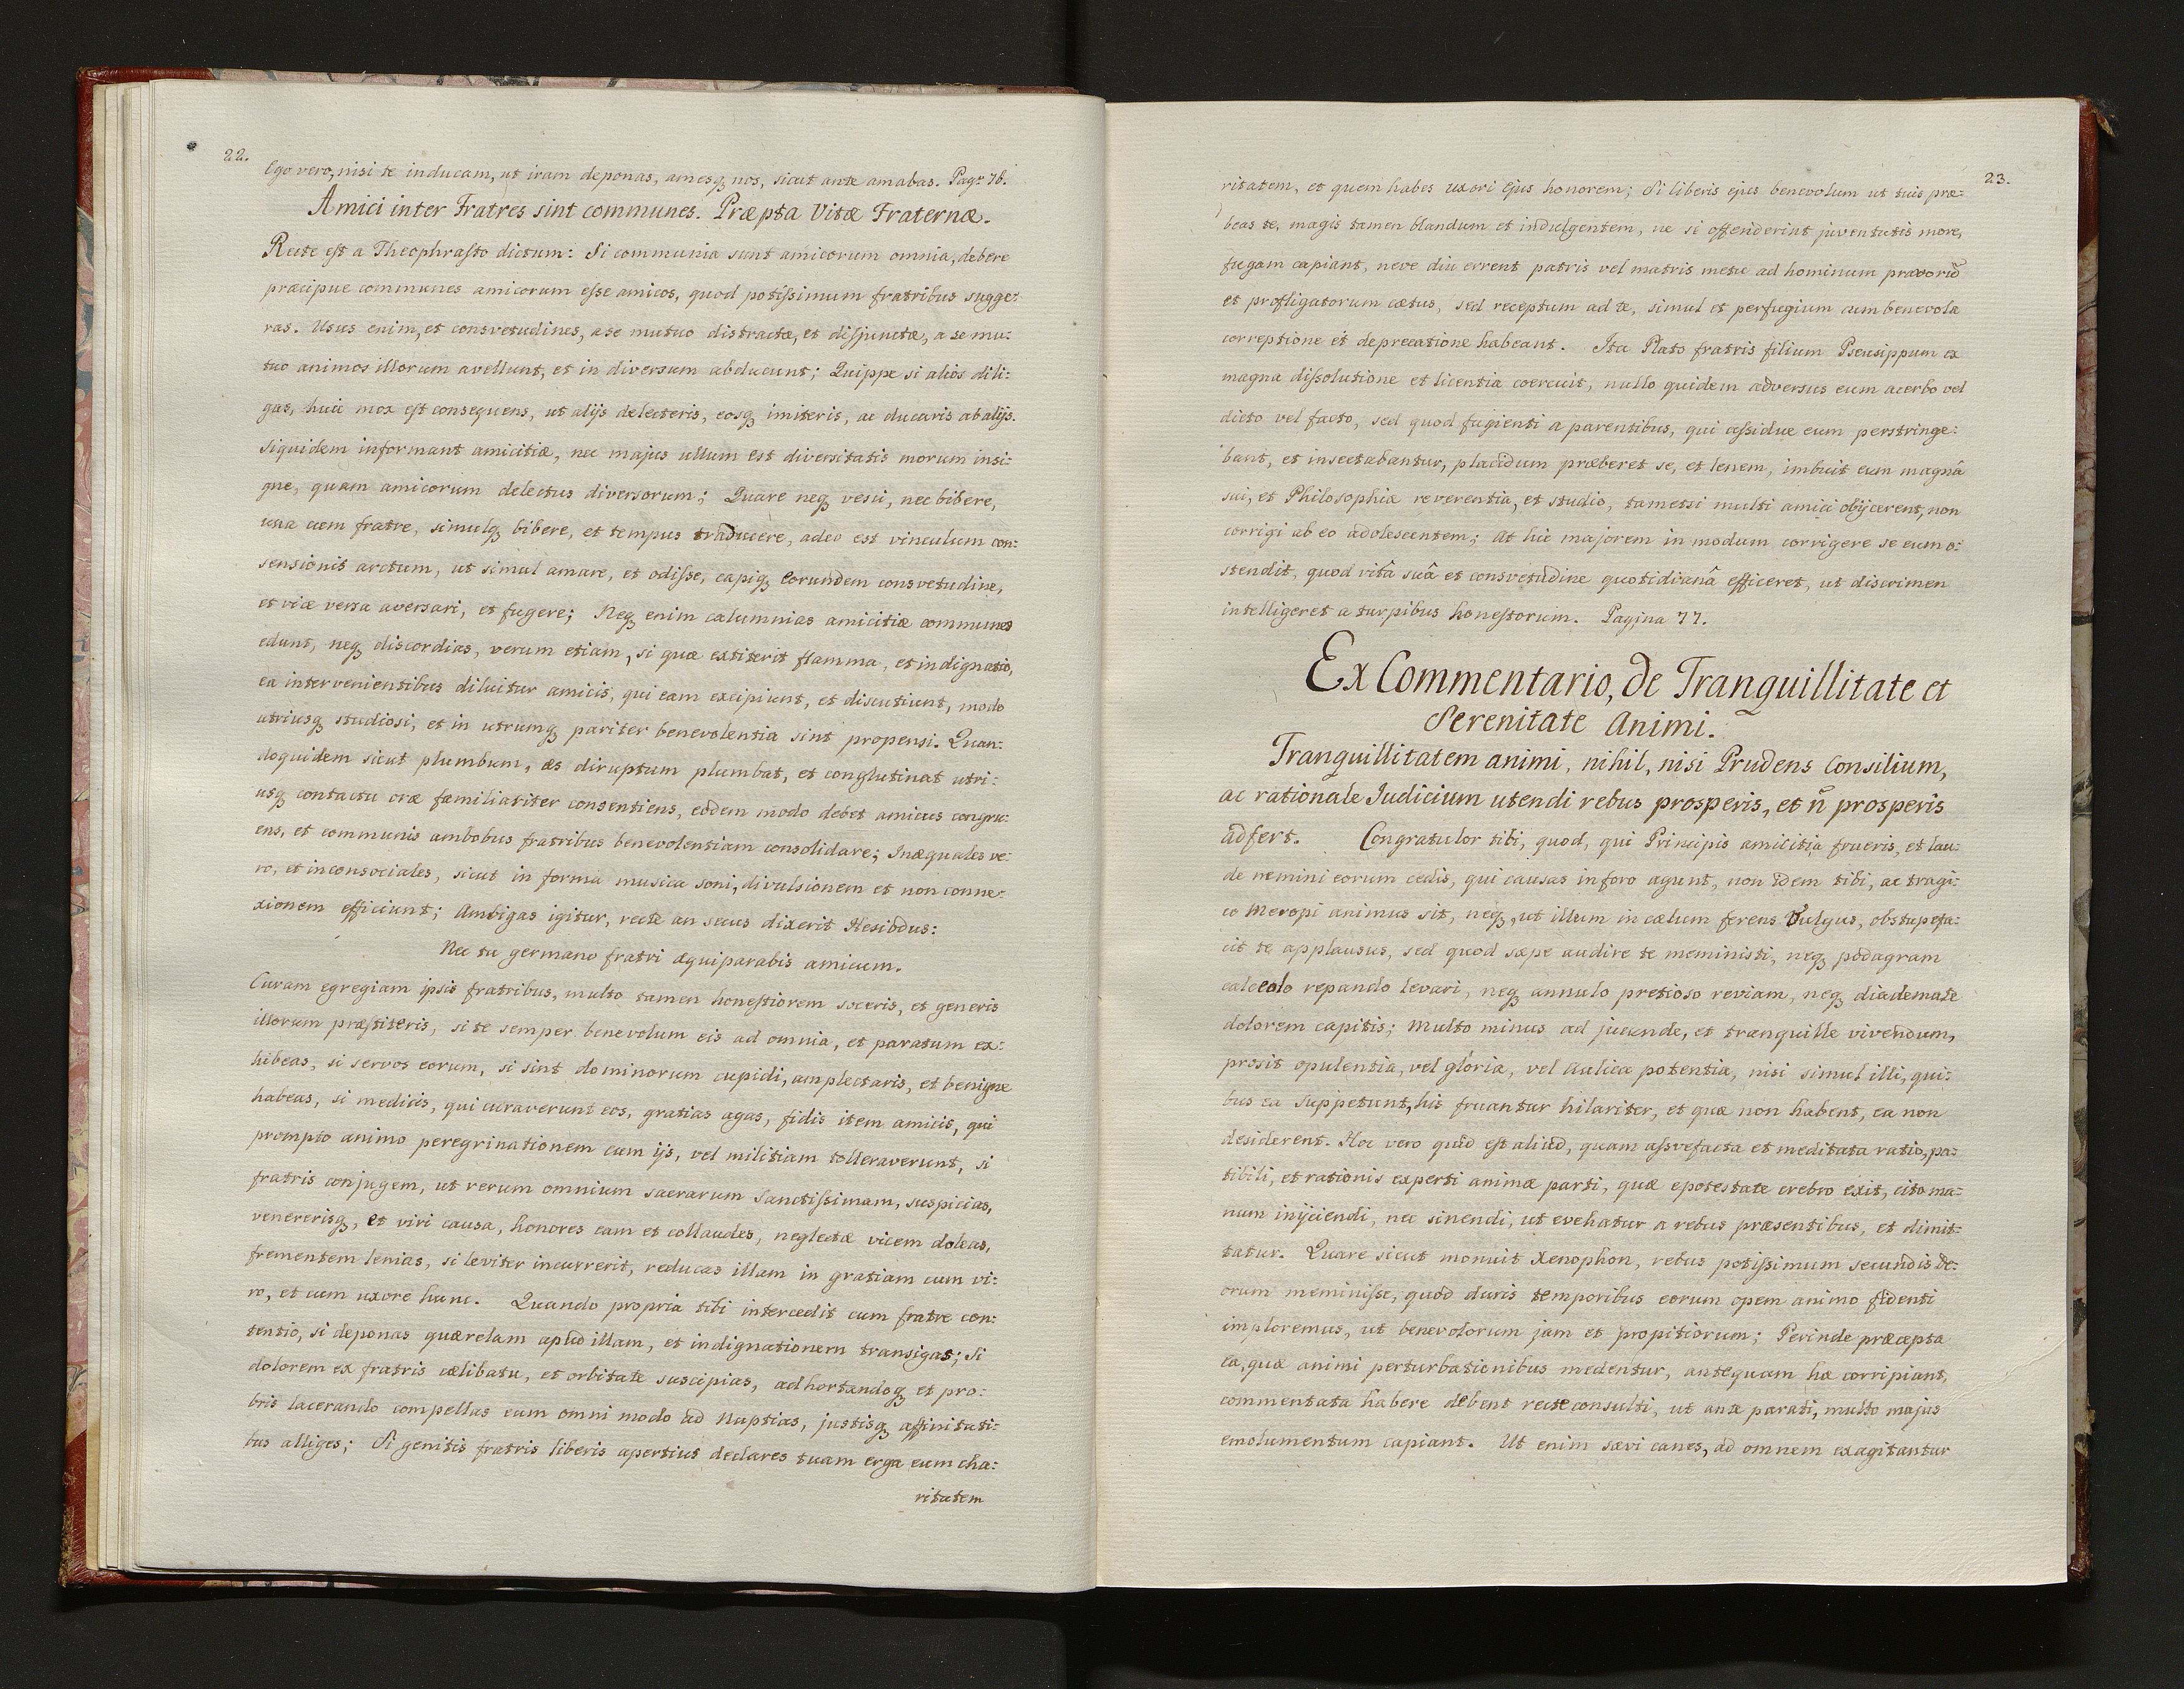 22.
Ego vero, nisi te inducam, ut iram deponas, amesq nos, sicut ante amabas. Pagᵃ 76.
Amici inter Fratres sint communes. Præpta Vitæ Fraternæ.
Recte est a Theophrasto dictum: Si communia sunt amicorum omnia, debere
præcipue communes amicorum esse amicos, quod potissimum fratribus sugge:
ras. Usus enim, et consvetudines, a se mutuo distractæ, et disjunctæ, a se mu:
tuo animos illorum avellunt, et in diversum abducunt; Quippe si alios dili:
gas, huic mox est consequens, ut alijs delecteris, eosq imiteris, ac ducaris ab alijs.
Siquidem informant amicitiæ, nec majus ullum est diversitatis morum insi:
gne, quam amicorum delectus diversorum; Quare neq vesci, nec bibere,
una cum fratre, simulq bibere, et tempus traducere, adeo est vinculum con:
sensionis arctum, ut simul amare, et odisse, capiq eorundem consvetudine,
et vice versa aversari, et fugere; Neq enim calumnias amicitiæ communes
edunt, neq discordias, verum etiam, si quæ extiterit flamma, et indignatio,
ea intervenientibus diluitur amicis, qui eam excipiunt, et discutiunt, modo
utriusq studiosi, et in utrumq pariter benevolentia sint propensi. Quan:
doquidem sicut plumbum, æs diruptum plumbat, et conglutinat utri:
usq contactu oræ familiariter consentiens, eodem modo debet amicus congru:
ens, et communis ambobus fratribus benevolentiam consolidare; Inæquales ve:
ro, et inconsociales, sicut in forma musica soni, divulsionem et non conne:
xionem efficiunt; Ambigas igitur, recte an secus dixerit Hesiodus:
Nec tu germano fratri æquiparabis amicum.
Curam egregiam ipsis fratribus, multo tamen honestiorem soceris, et generis
illorum præstiteris, si te semper benevolum eis ad omnia, et paratum ex:
hibeas, si servos eorum, si sint dominorum cupidi, amplectaris, et benigne
habeas, si medicis, qui curaverunt eos, gratias agas, fidis item amicis, qui
prompto animo peregrinationem cum ijs, vel militiam tolleraverunt, si
fratris conjugem, ut rerum omnium sacrarum Sanctissimam, suspicias,
venererisq, et viri causa, honores eam et collaudes, neglectæ vicem doleas,
frementem lenias, si leviter incurrerit, reducas illam in gratiam cum vi:
ro, et cum uxore hunc. Quando propria tibi intercedit cum fratre con:
tentio, si deponas quærelam apud illam, et indignationem transigas; Si
dolorem ex fratris cælibatu, et orbitate suscipias, adhortandoq et pro:
bris lacerando compellas eum omni modo ad Nuptias, justisq affinitati:
bus alliges; Si genitis fratris liberis apertius declares tuam erga eum cha:
ritatem
23.
ritatem, et quem habes uxori ejus honorem; Si liberis ejus benevolum ut tuis præ:
beas te, magis tamen blandum et indulgentem, ne si offenderint juventutis more,
fugam capiant, neve diu errent patris vel matris metu ad hominum pravorū
et profligatorum cætus, sed receptum ad te, simul et perfugium cum benevola
correptione et deprecatione habeant. Ita Plato fratris filium Pseusippum ex
magna dissolutione et licentia coercuit, nullo quidem adversus eum acerbo vel
dicto vel facto, sed quod fugienti a parentibus, qui assidue eum perstringe:
bant, et insectabantur, placidum præberet se, et lenem, imbuit eum magnâ
sui, et Philosophiæ reverentia, et studio, tametsi multi amici obijcerent, non
corrigi ab eo adolescentem; At hic majorem in modum corrigere se eum o:
stendit, quod vitâ suâ et consvetudine quotidianâ efficeret, ut discrimen
intelligeret a turpibus honestorum. Pagina 77.
Ex Commentario, de Tranquillitate et
Serenitate Animi.
Tranquillitatem animi, nihil, nisi Prudens Consilium,
ac rationale Iudicium utendi rebus prosperis, et n̄ prosperis
adfert. Congratulor tibi, quod, qui Principis amicitia frueris, et lau:
de nemini eorum cedis, qui causas in foro agunt, non idem tibi, ac tragi:
co Meropi animus sit, neq, ut illum in cælum ferens Vulgus, obstupefa:
cit te applausus, sed quod sæpe audire te meministi, neq podagram
calceolo repando levari, neq annulo pretioso reviam, neq diademate
dolorem capitis; Multo minus ad jucunde, et tranquille vivendum,
prosit opulentia, vel gloria, vel Aulica potentia, nisi simul illi, qui:
bus ea suppetunt, his fruantur hilariter, et quæ non habent, ea non
desiderent. Hoc vero quid est aliud, quam assvefacta et meditata ratio, pa:
tibili, et rationis experti animæ parti, quæ e potestate crebro exit, cito ma:
num inijciendi, nec sinendi, ut evehatur a rebus præsentibus, et dimit:
tatur. Quare sicut monuit Xenophon, rebus potissimum secundis De:
orum meminisse, quod duris temporibus eorum opem animo fidenti
imploremus, ut benevolorum jam et propitiorum; Perinde præcepta
ea, quæ animi perturbationibus medentur, antequam hæ corripiant,
commentata habere debent recte consulti, ut ante parati, multo majus
emolumentum capiant. Ut enim sævi canes, ad omnem exagitantur